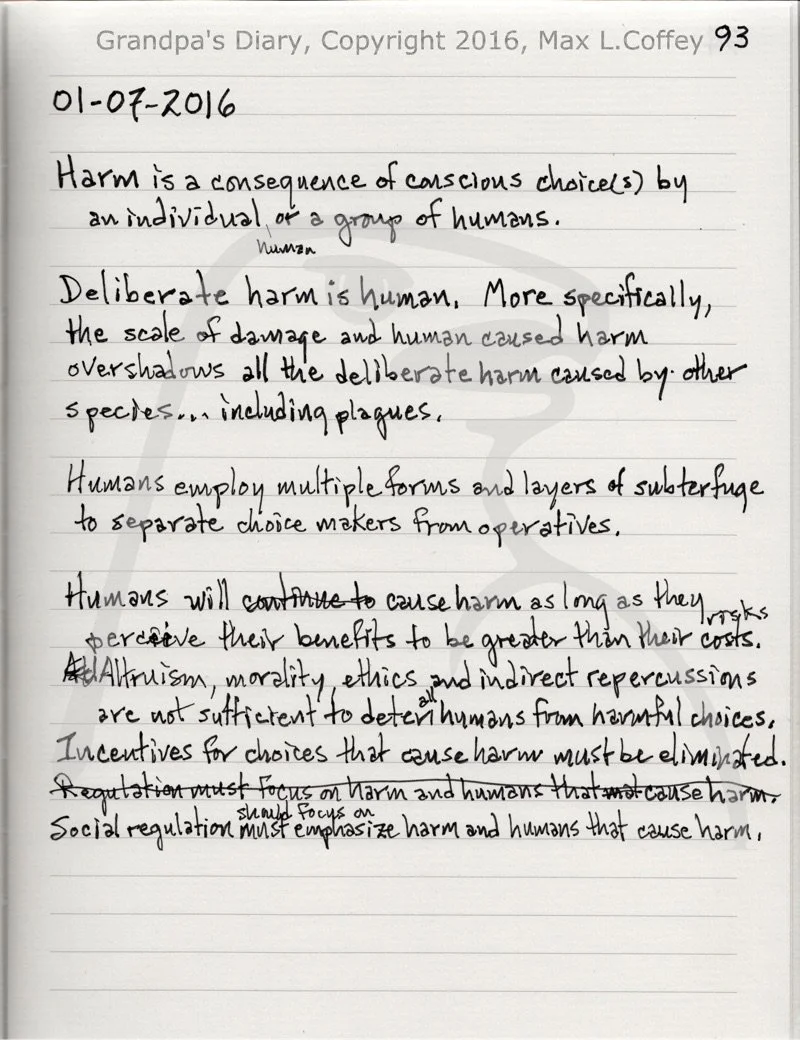 Grandpa's Diary, Copyright 2016, Max L.Coffey 93
01-07-2016
Harm is a consequence of conscious choice(s) by
an individual or a group of humans.
human
Deliberate harm is human. More specifically,
the scale of damage and human caused harm
overshadows all the deliberate harm caused by other
species... including plagues.
Humans employ multiple forms and layers of subterfuge
to separate choice makers from operatives.
Humans will continue to cause harm as long as they
risks
perceive their benefits to be greater than their costs.
Altruism, morality, ethics and indirect repercussions
all
are not sufficient to deter humans from harmful choices.
Incentives for choices that cause harm must be eliminated.
Regulation must focus on harm and humans that cause harm.
should focus on
Social regulation must emphasize harm and humans that cause harm.